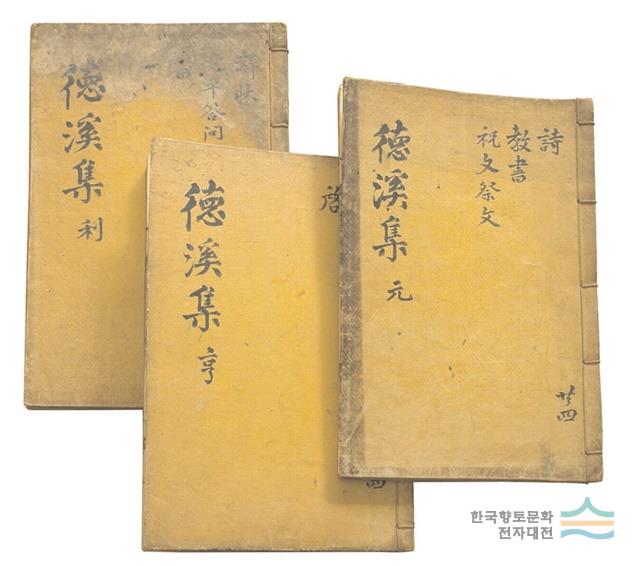 答问
德溪集 利
德溪集 亨
詩
教書
祝文祭文
德溪集 元
共四
한국향토문화
전자대전